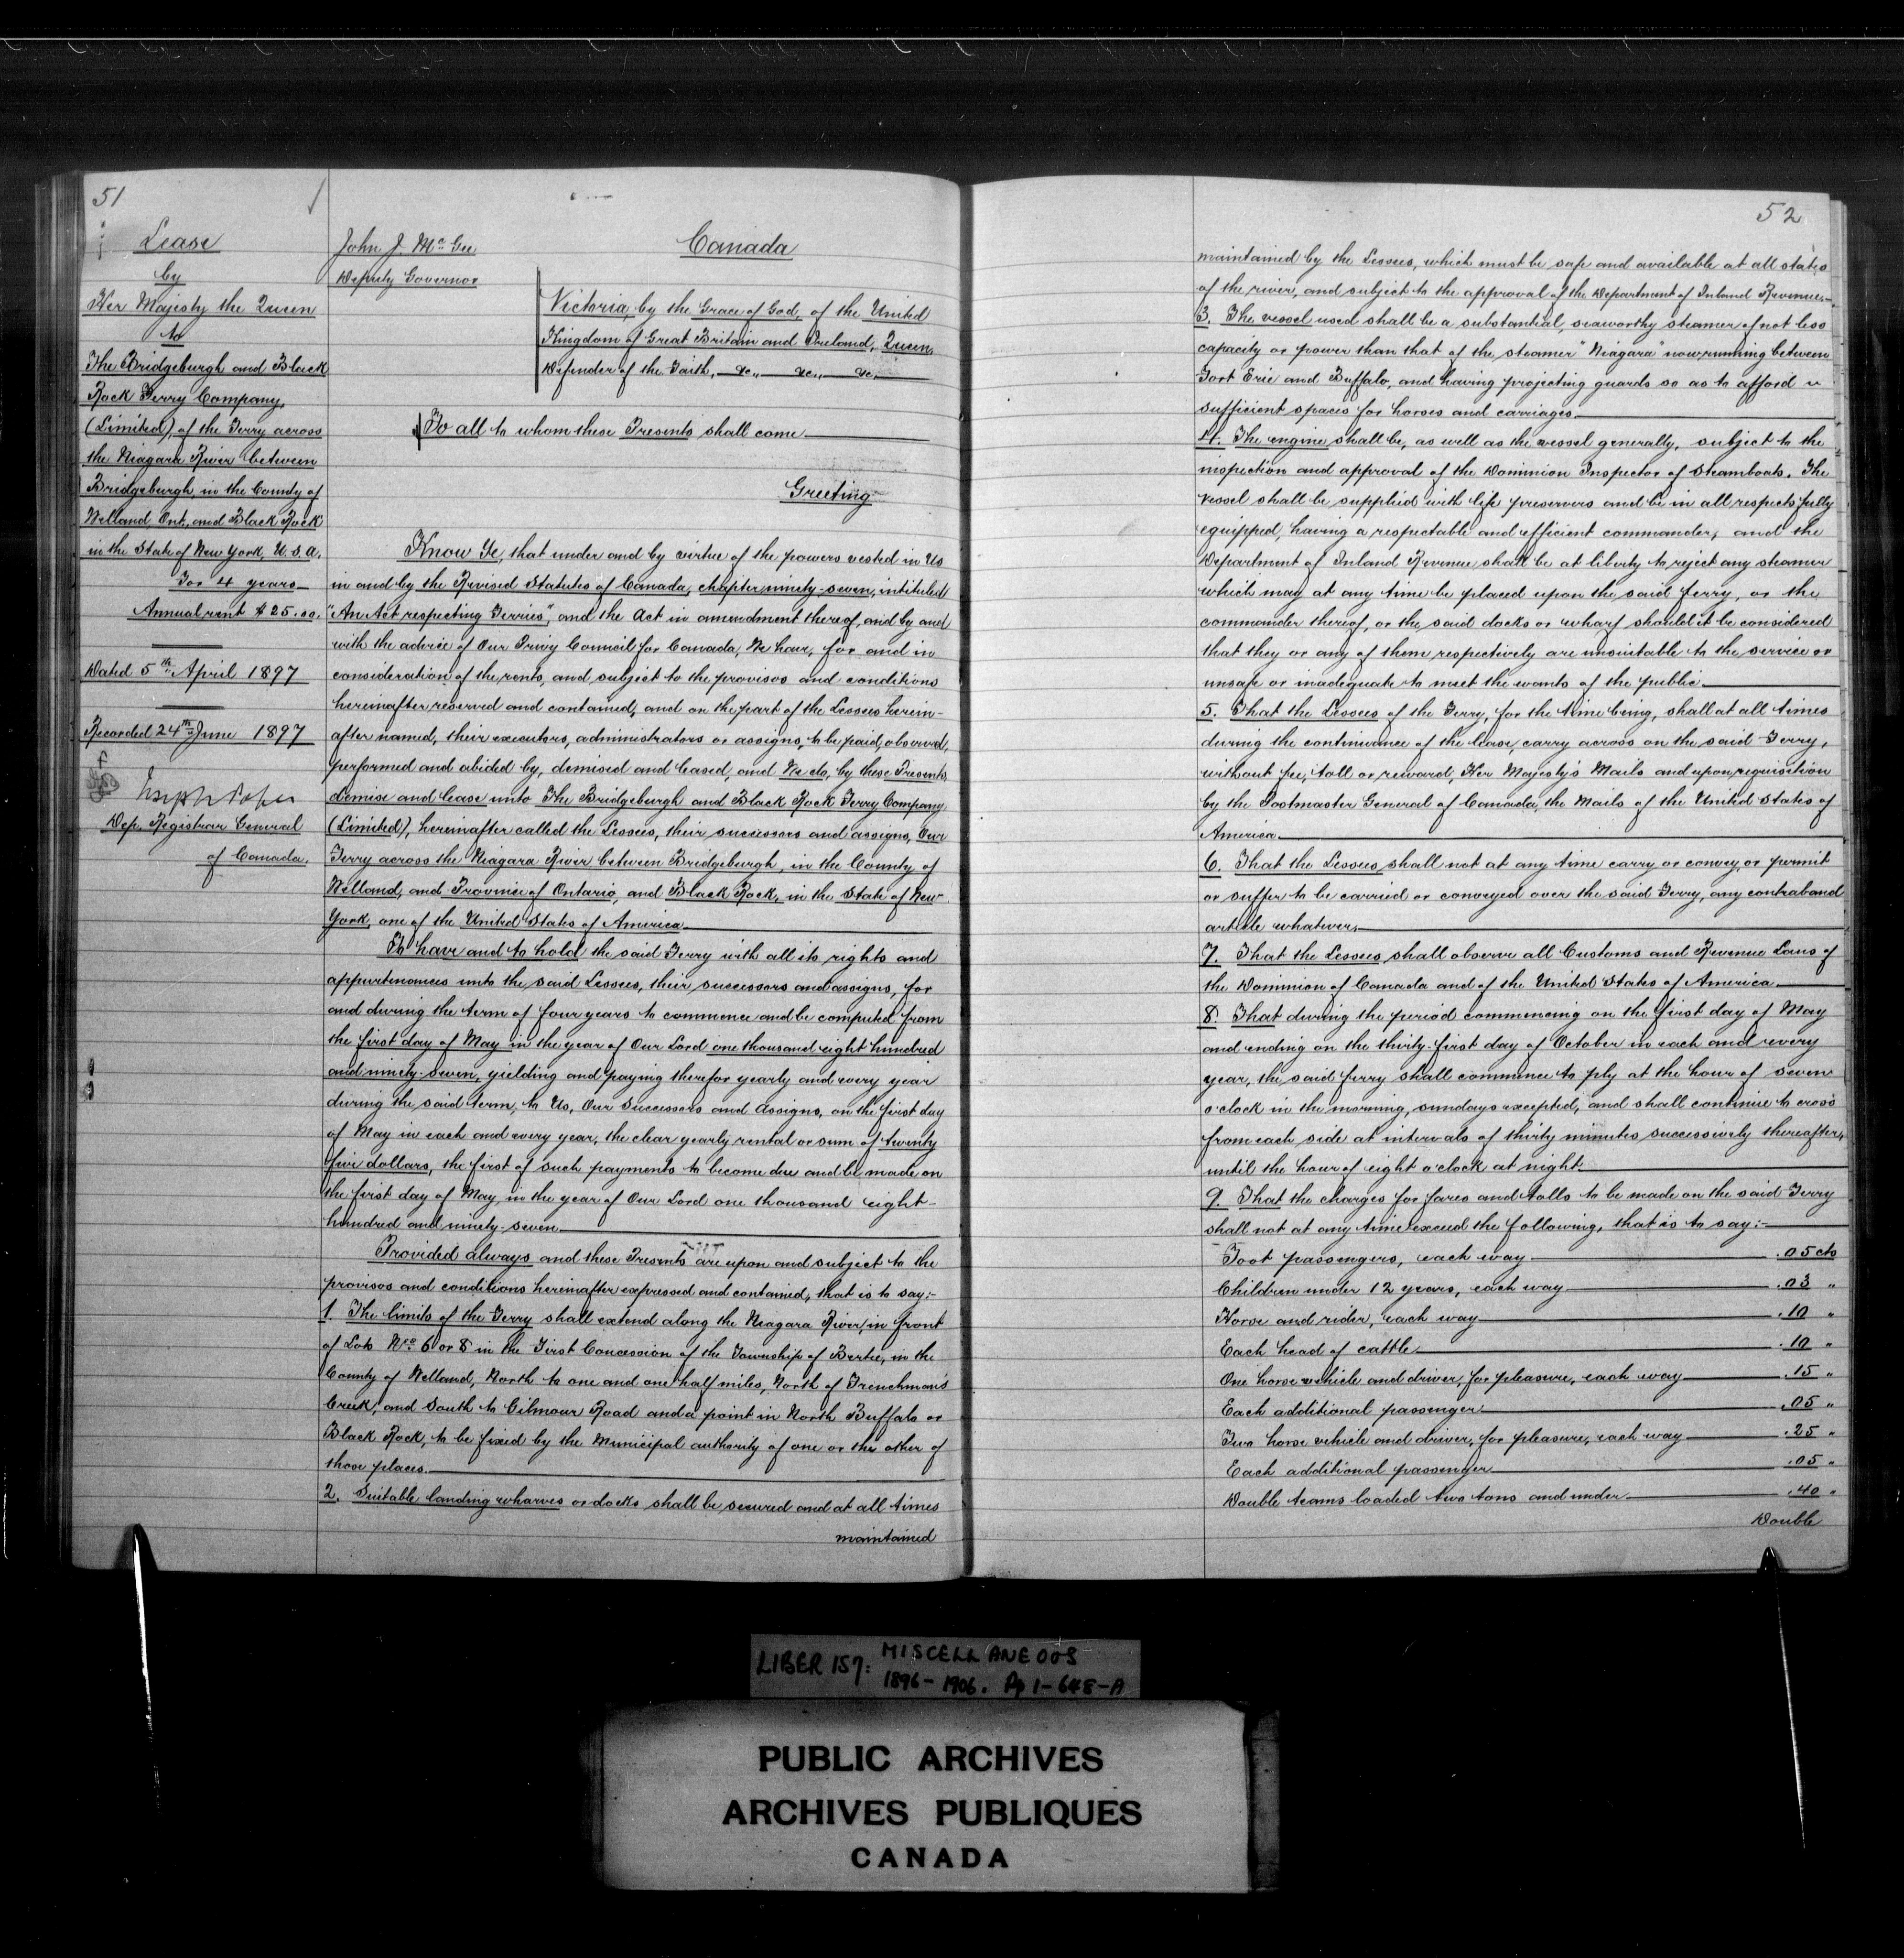 51
Lease
by
Her Majesty the Queen
to
The Bridgeburgh and Black
Rock Ferry Company,
(Limited), of the Ferry across
the Niagara River between
Bridgeburgh, in the County of
Welland Ont., and Black Rock
in the State of New York, U.S.A.
For 4 years
Annual rent $25.00.
Dated 5th April 1897
Recorded 24th June 1897
Joseph Pope
Dep. Registrar General
of Canada.
John J. McGee
Deputy Governor
Canada
Victoria, by the Grace of God, of the United
Kingdom of Great Britain and Ireland, Queen,
Defender of the Faith, &c., &c., &c.
To all to whom these Presents shall come
Greeting
Know Ye, that under and by virtue of the powers vested in Us
in and by the Revised Statutes of Canada, chapter ninety-seven, intituled
"An Act respecting Ferries", and the Act in amendment thereof, and by and
with the advice of Our Privy Council for Canada, We have, for and in
consideration of the rents, and subject to the provisos and conditions
hereinafter reserved and contained, and on the part of the Lessees herein-
after named, their executors, administrators or assigns, to be paid, observed,
performed and abided by, demised and leased, and We do, by these Presents
demise and lease unto The Bridgeburgh and Black Rock Ferry Company
(Limited), hereinafter called the Lessees, their successors and assigns, Our
Ferry across the Niagara River between Bridgeburgh, in the County of
Welland, and Province of Ontario, and Black Rock, in the State of New-
York, one of the United States of America
To have and to hold the said Ferry with all its rights and
appurtenances unto the said Lessees, their successors and assigns, for
and during the term of four years to commence and be computed from
the first day of May in the year of Our Lord one thousand eight hundred
and ninety-seven, yielding and paying therefor yearly and every year
during the said term, to Us, Our Successors and Assigns, on the first day
of May in each and every year, the clear yearly rental or sum of twenty
five dollars, the first of such payments to become due and be made on
the first day of May in the year of Our Lord one thousand eight-
hundred and ninety-seven
Provided always and these Presents are upon and subject to the
provisos and conditions hereinafter expressed and contained, that is to say:-
1. The limits of the Ferry shall extend along the Niagara River, in front
of Lots Nos. 6 or 8 in the First Concession of the Township of Bertie, in the
County of Welland, North to one and one half miles, North of Frenchman's
Creek, and South to Gilmour Road and a point in North Buffalo or
Black Rock, to be fixed by the Municipal authority of one or the other of
those places.
2. Suitable landing wharves or docks shall be secured and at all times
maintained
52
maintained by the Lessees, which must be safe and available at all states
of the river, and subject to the approval of the Department of Inland Revenue.
3. The vessel used shall be a substantial, seaworthy steamer of not less
capacity or power than that of the steamer "Niagara" now running between
Fort Erie and Buffalo, and having projecting guards so as to afford a
sufficient spaces for horses and carriages.
4. The engine shall be, as well as the vessel generally, subject to the
inspection and approval of the Dominion Inspector of Steamboats. The
vessel shall be supplied with life preservers and be in all respects fully
equipped, having a respectable and efficient commander, and the
Department of Inland Revenue shall be at liberty to reject any steamer
which may at any time be placed upon the said ferry, or the
commander thereof, or the said docks or wharf should it be considered
that they or any of them respectively are unsuitable to the service or
unsafe or inadequate to meet the wants of the public
5. That the Lessees of the Ferry, for the time being, shall at all times
during the continuance of the lease, carry across on the said Ferry,
without fee, toll or reward, Her Majesty's Mails and upon requisition
by the Postmaster General of Canada, the Mails of the United States of
America
6. That the Lessees shall not at any time carry or convey, or permit
or suffer to be carried or conveyed over the said Ferry, any contraband
article whatever.
7. That the Lessees shall observe all Customs and Revenue Laws of
the Dominion of Canada and of the United States of America
8. That during the period commencing on the first day of May
and ending on the thirty-first day of October in each and every
year, the said ferry shall commence to ply at the hour of seven
o'clock in the morning, sundays excepted, and shall continue to cross
from each side at intervals of thirty minutes successively thereafter,
until the hour of eight o'clock at night
9. That the charges for fares and tolls to be made on the said Ferry
shall not at any time exceed the following, that is to say:-
Foot passengers, each way .05 cts
Children under 12 years, each way .03 "
Horse and rider, each way .10 "
Each head of cattle .10 "
One horse vehicle and driver, for pleasure, each way .15 "
Each additional passenger .05 "
Two horse vehicle and driver, for pleasure, each way .25 "
Each additional passenger .05 "
Double teams loaded two tons and under .40 "
Double
LIBER 157: MISCELLANEOUS
1896-1906. Pp 1-648-A
PUBLIC ARCHIVES
ARCHIVES PUBLIQUES
CANADA